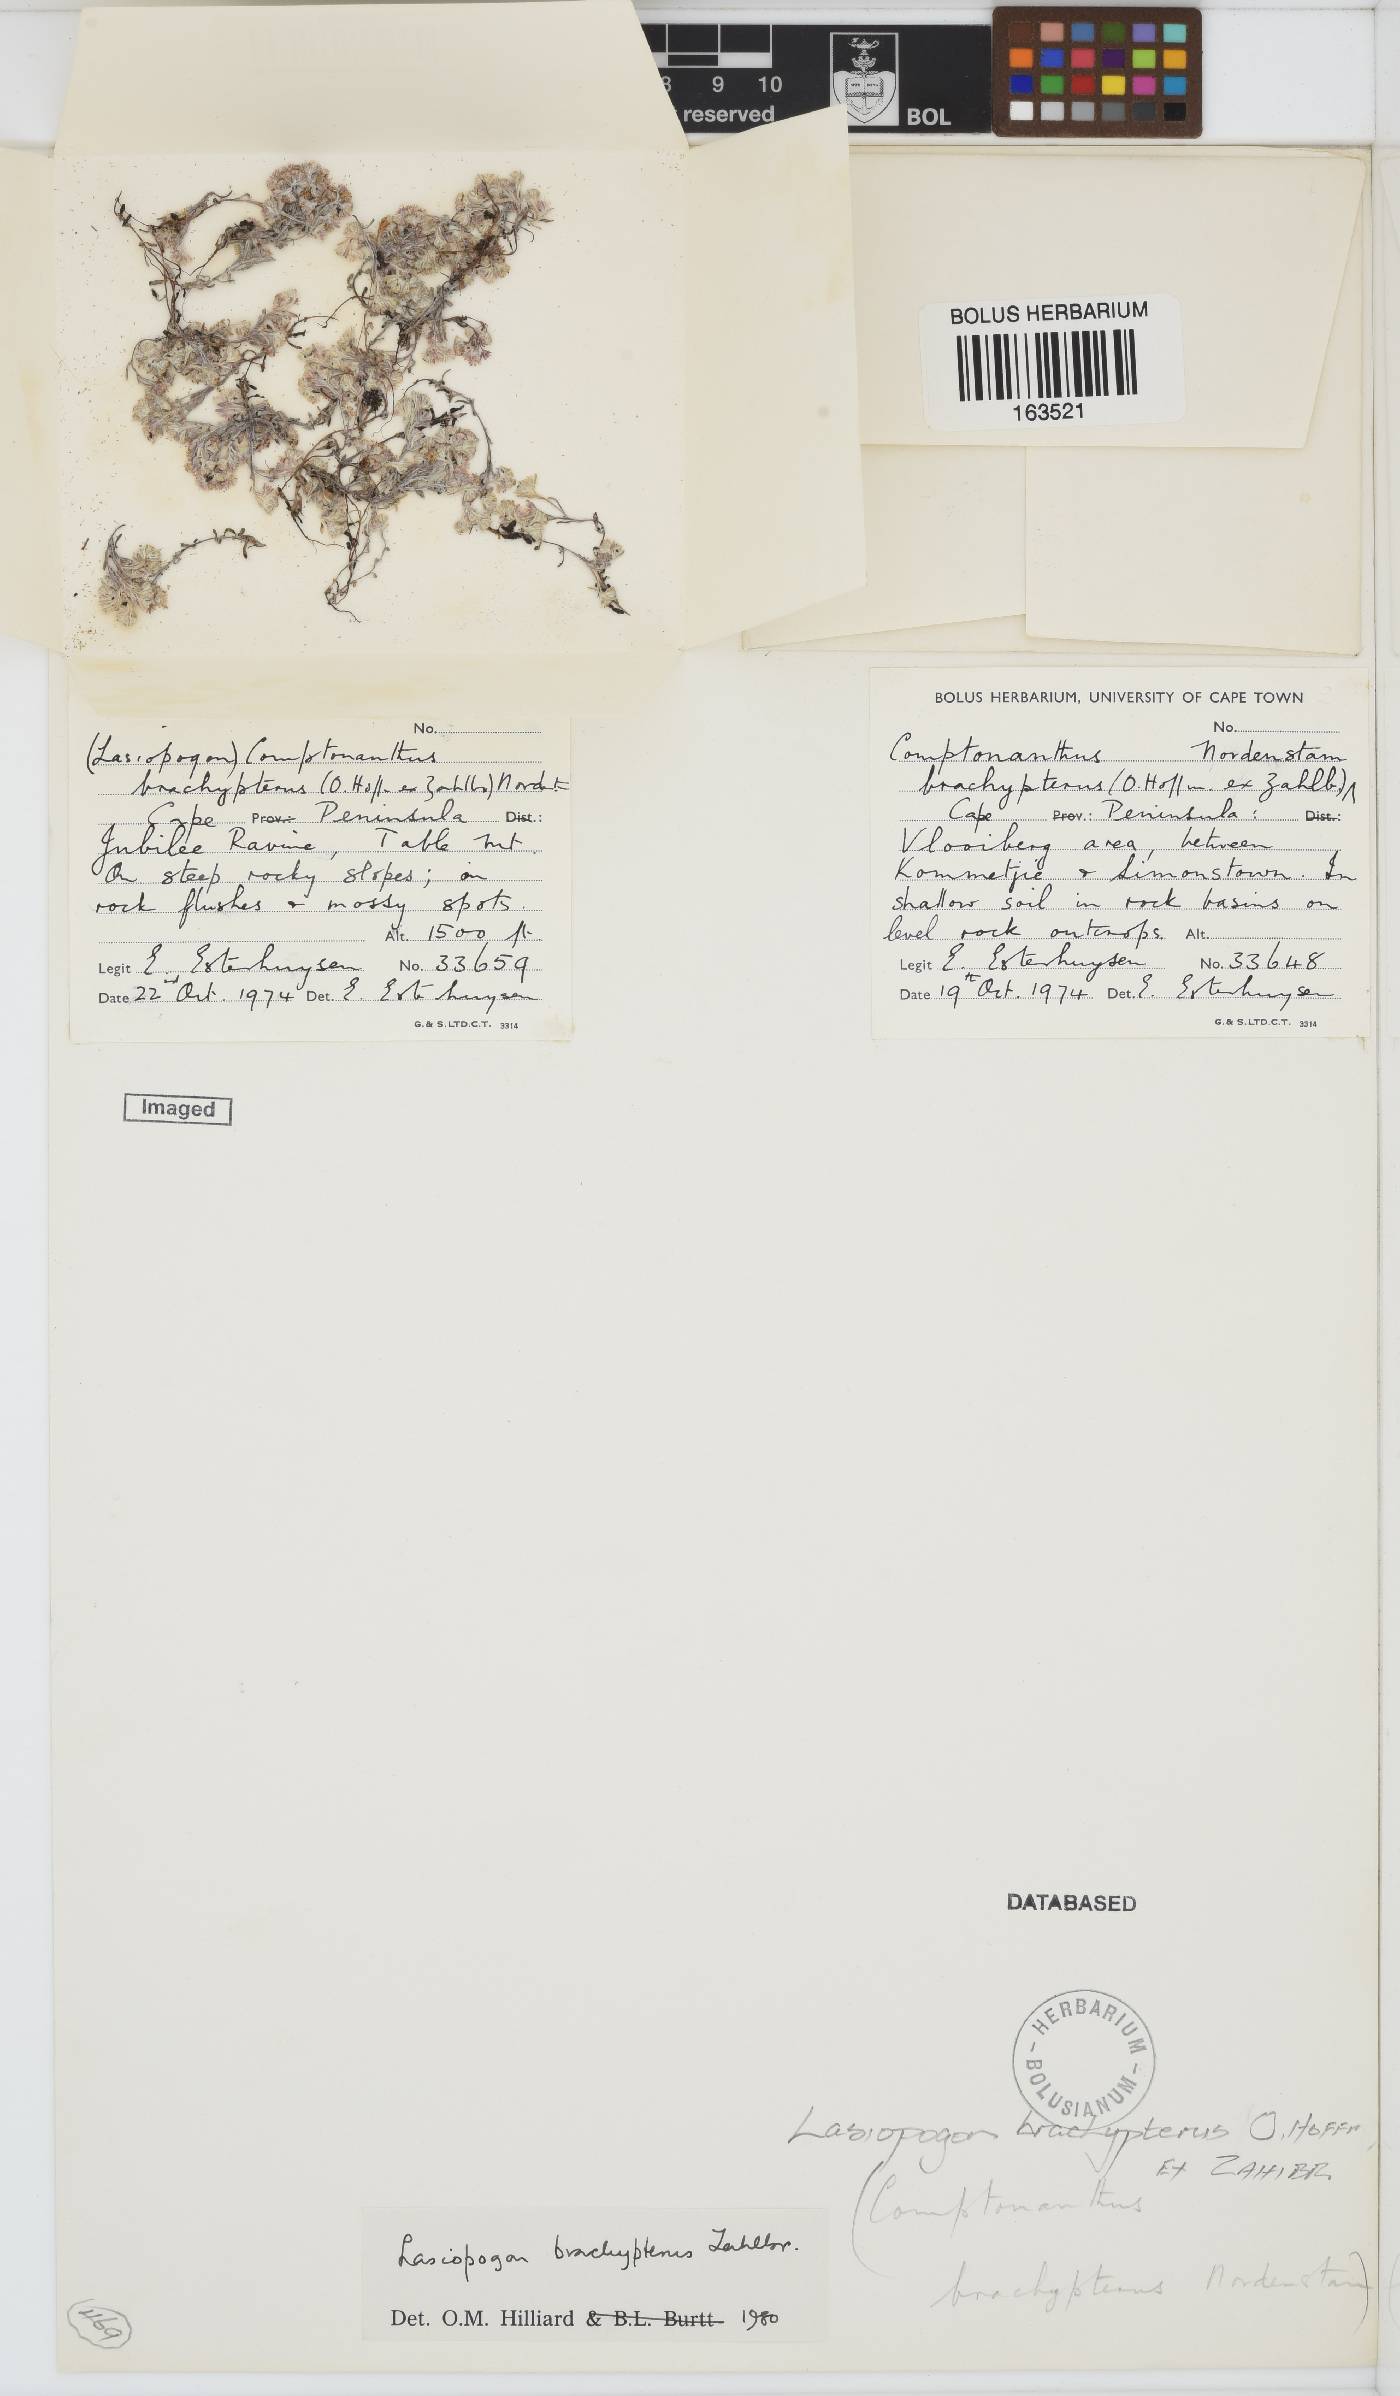 8 9 10
reserved
BOL
BOLUS HERBARIUM
163521
No.
(Lasiopogon) Comptonanthus
brachypterus (O. Hoffm. ex Zahlbr) Nordst
Cape Prov.: Peninsula Dist.:
Jubilee Ravine, Table Mt.
On steep rocky slopes; in
rock flushes & mossy spots.
Alt. 1500 ft
Legit E. Esterhuysen No. 33659
Date 22nd Oct. 1974 Det. E. Esterhuysen
G. & S. LTD. C.T. 3314
BOLUS HERBARIUM, UNIVERSITY OF CAPE TOWN
No.
Comptonanthus Nordenstam
brachypterus (O. Hoffm. ex Zahlb.)
Cape Prov.: Peninsula: Dist.:
Vlooiberg area, between
Kommetjie & Simonstown. In
shallow soil in rock basins on
level rock outcrops. Alt.
Legit E. Esterhuysen No. 33648
Date 19th Oct. 1974 Det. E. Esterhuysen
G. & S. LTD. C.T. 3314
Imaged
DATABASED
HERBARIUM
BOLUSIANUM
Lasiopogon brachypterus O. HOFFM
EX ZAHLBR
(Comptonanthus
brachypterus Nordenstam)
Lasiopogon brachypterus Zahlbr.
Det. O.M. Hilliard & B.L. Burtt 1980
1169